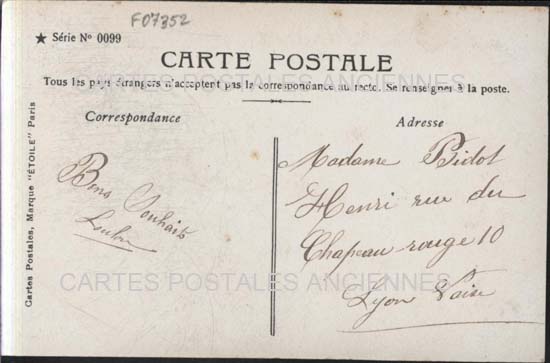 F07352
★ Série Nº 0099
CARTE POSTALE
Tous les pays étrangers n'acceptent pas la correspondance au recto. Se renseigner à la poste.
CARTES POSTALES ANCIENNES
Correspondance
Bons Souhaits
Adresse
Madame
Henri rue du
Chapeau rouge 10
Lyon Vaise
CARTES POSTALES ANCIENNES
Cartes Postales, Marque "ÉTOILE" Paris